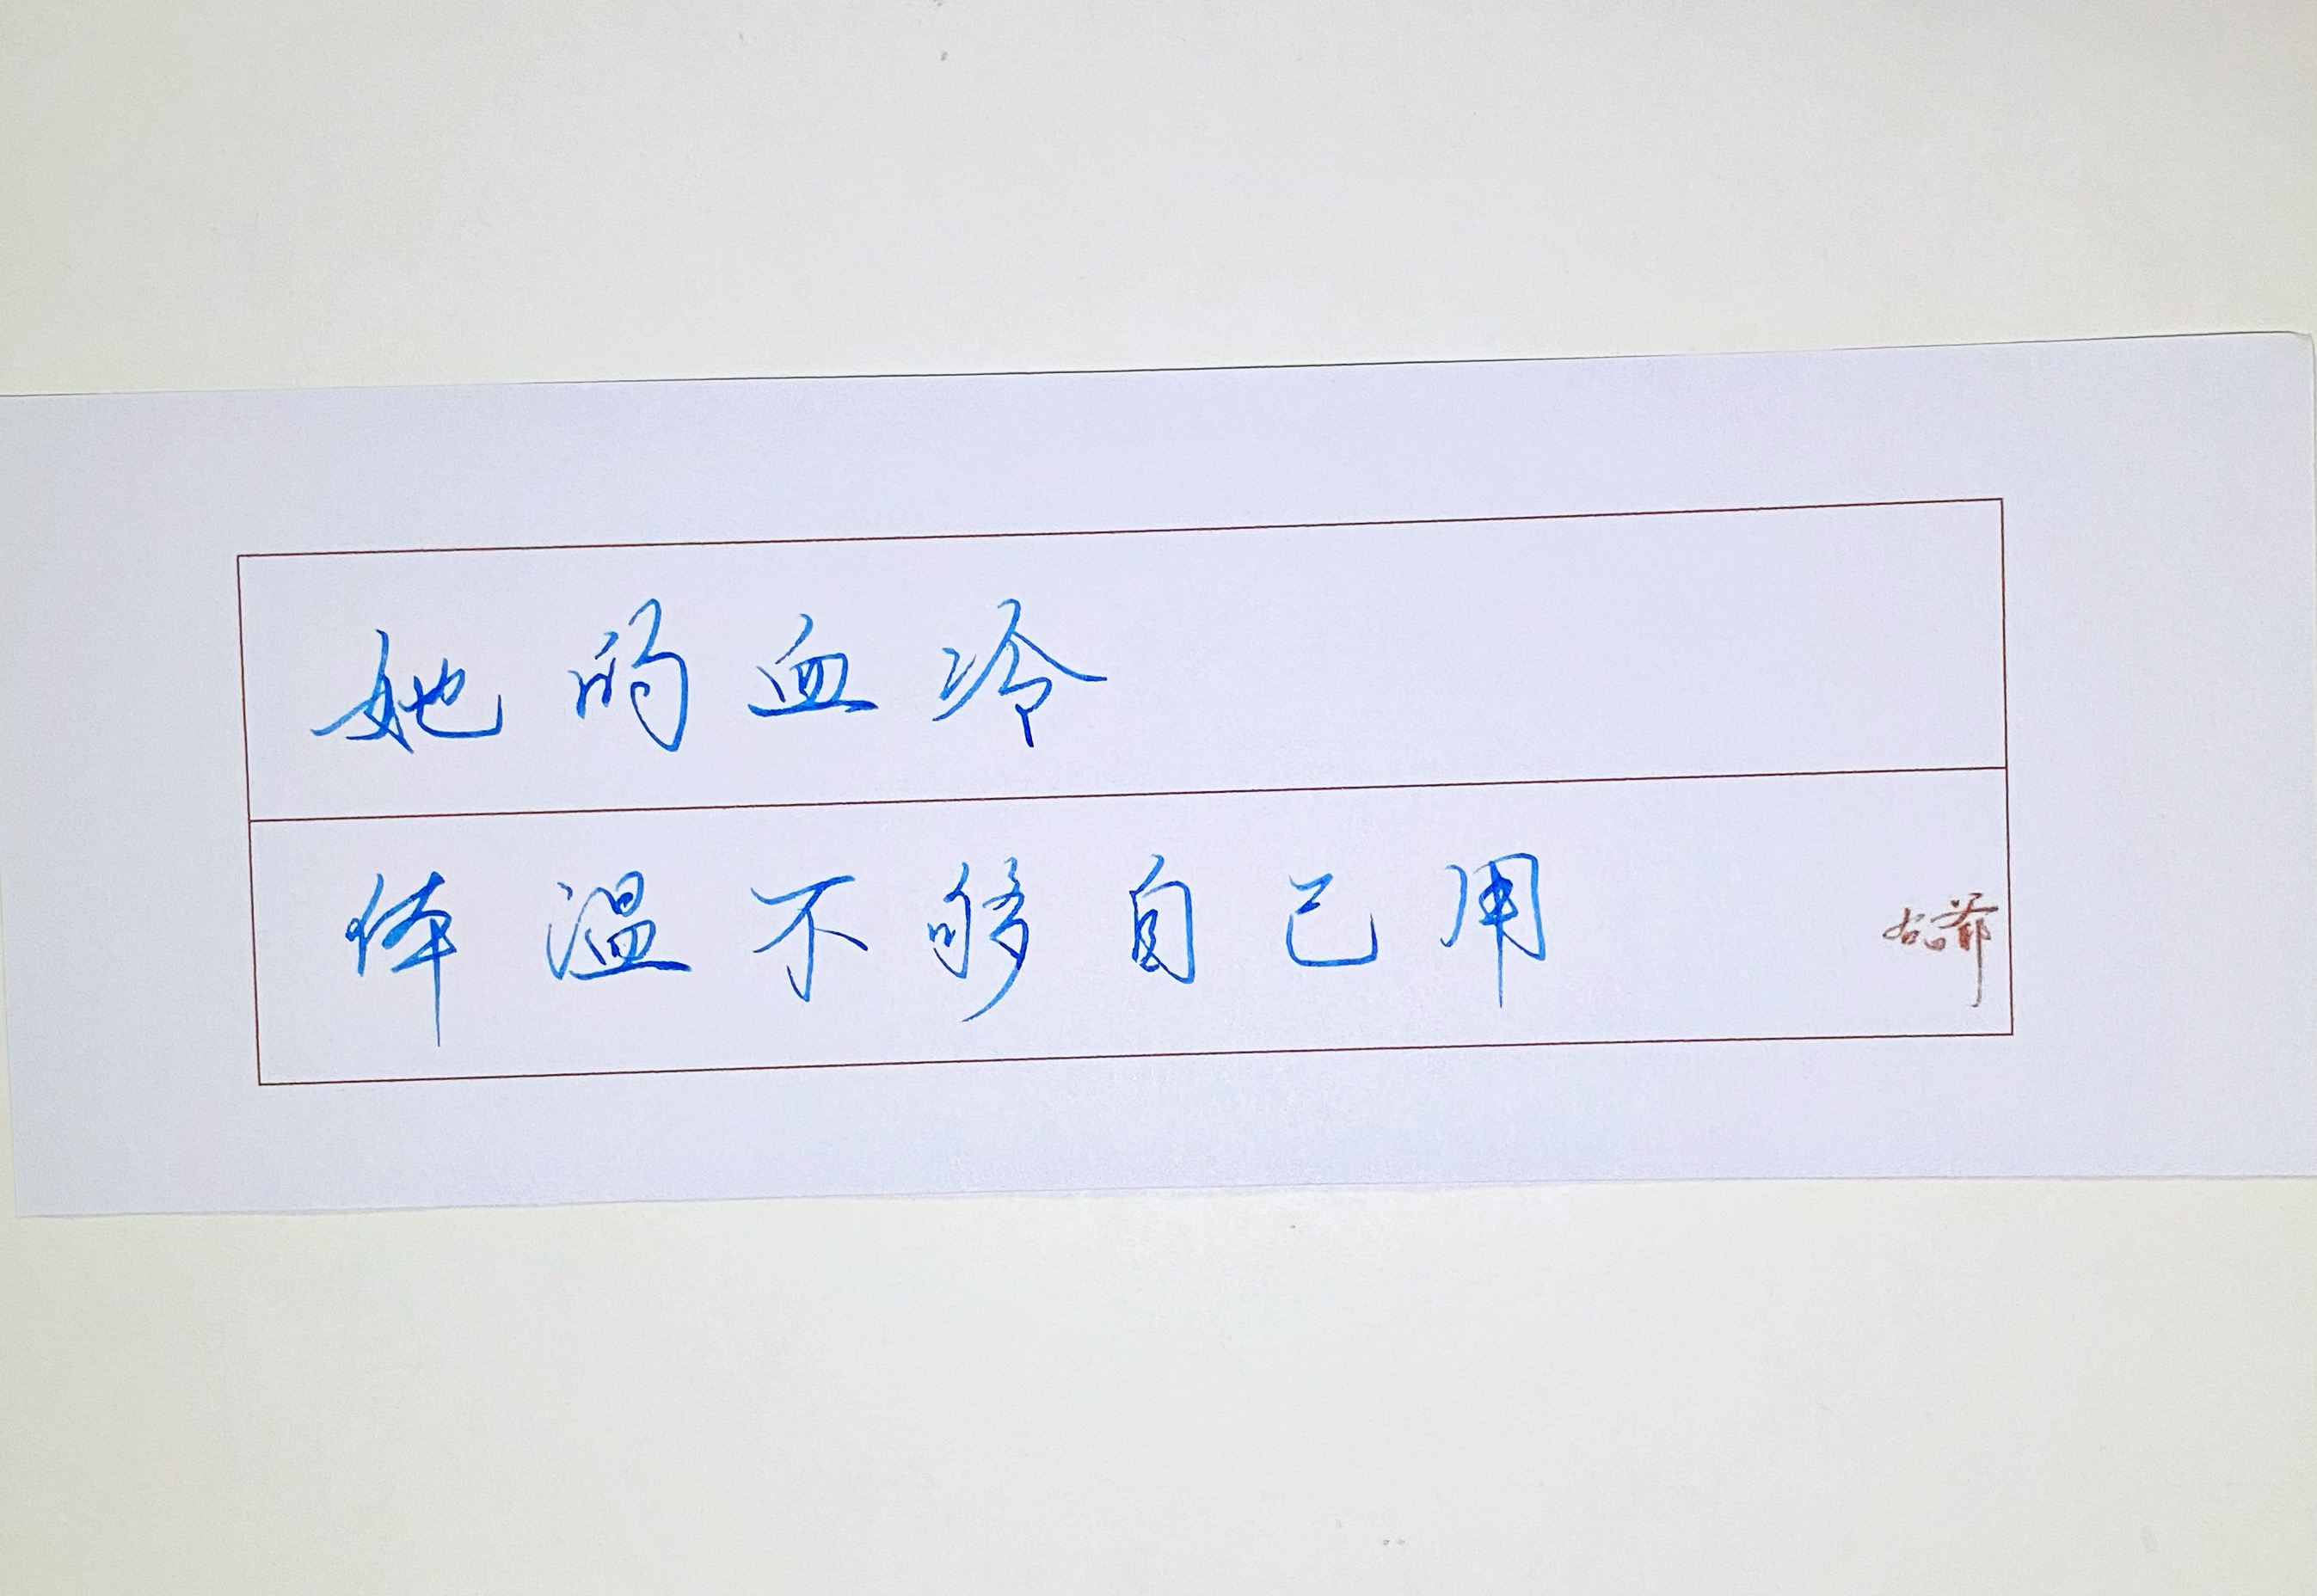 她的血冷
体温不够自己用